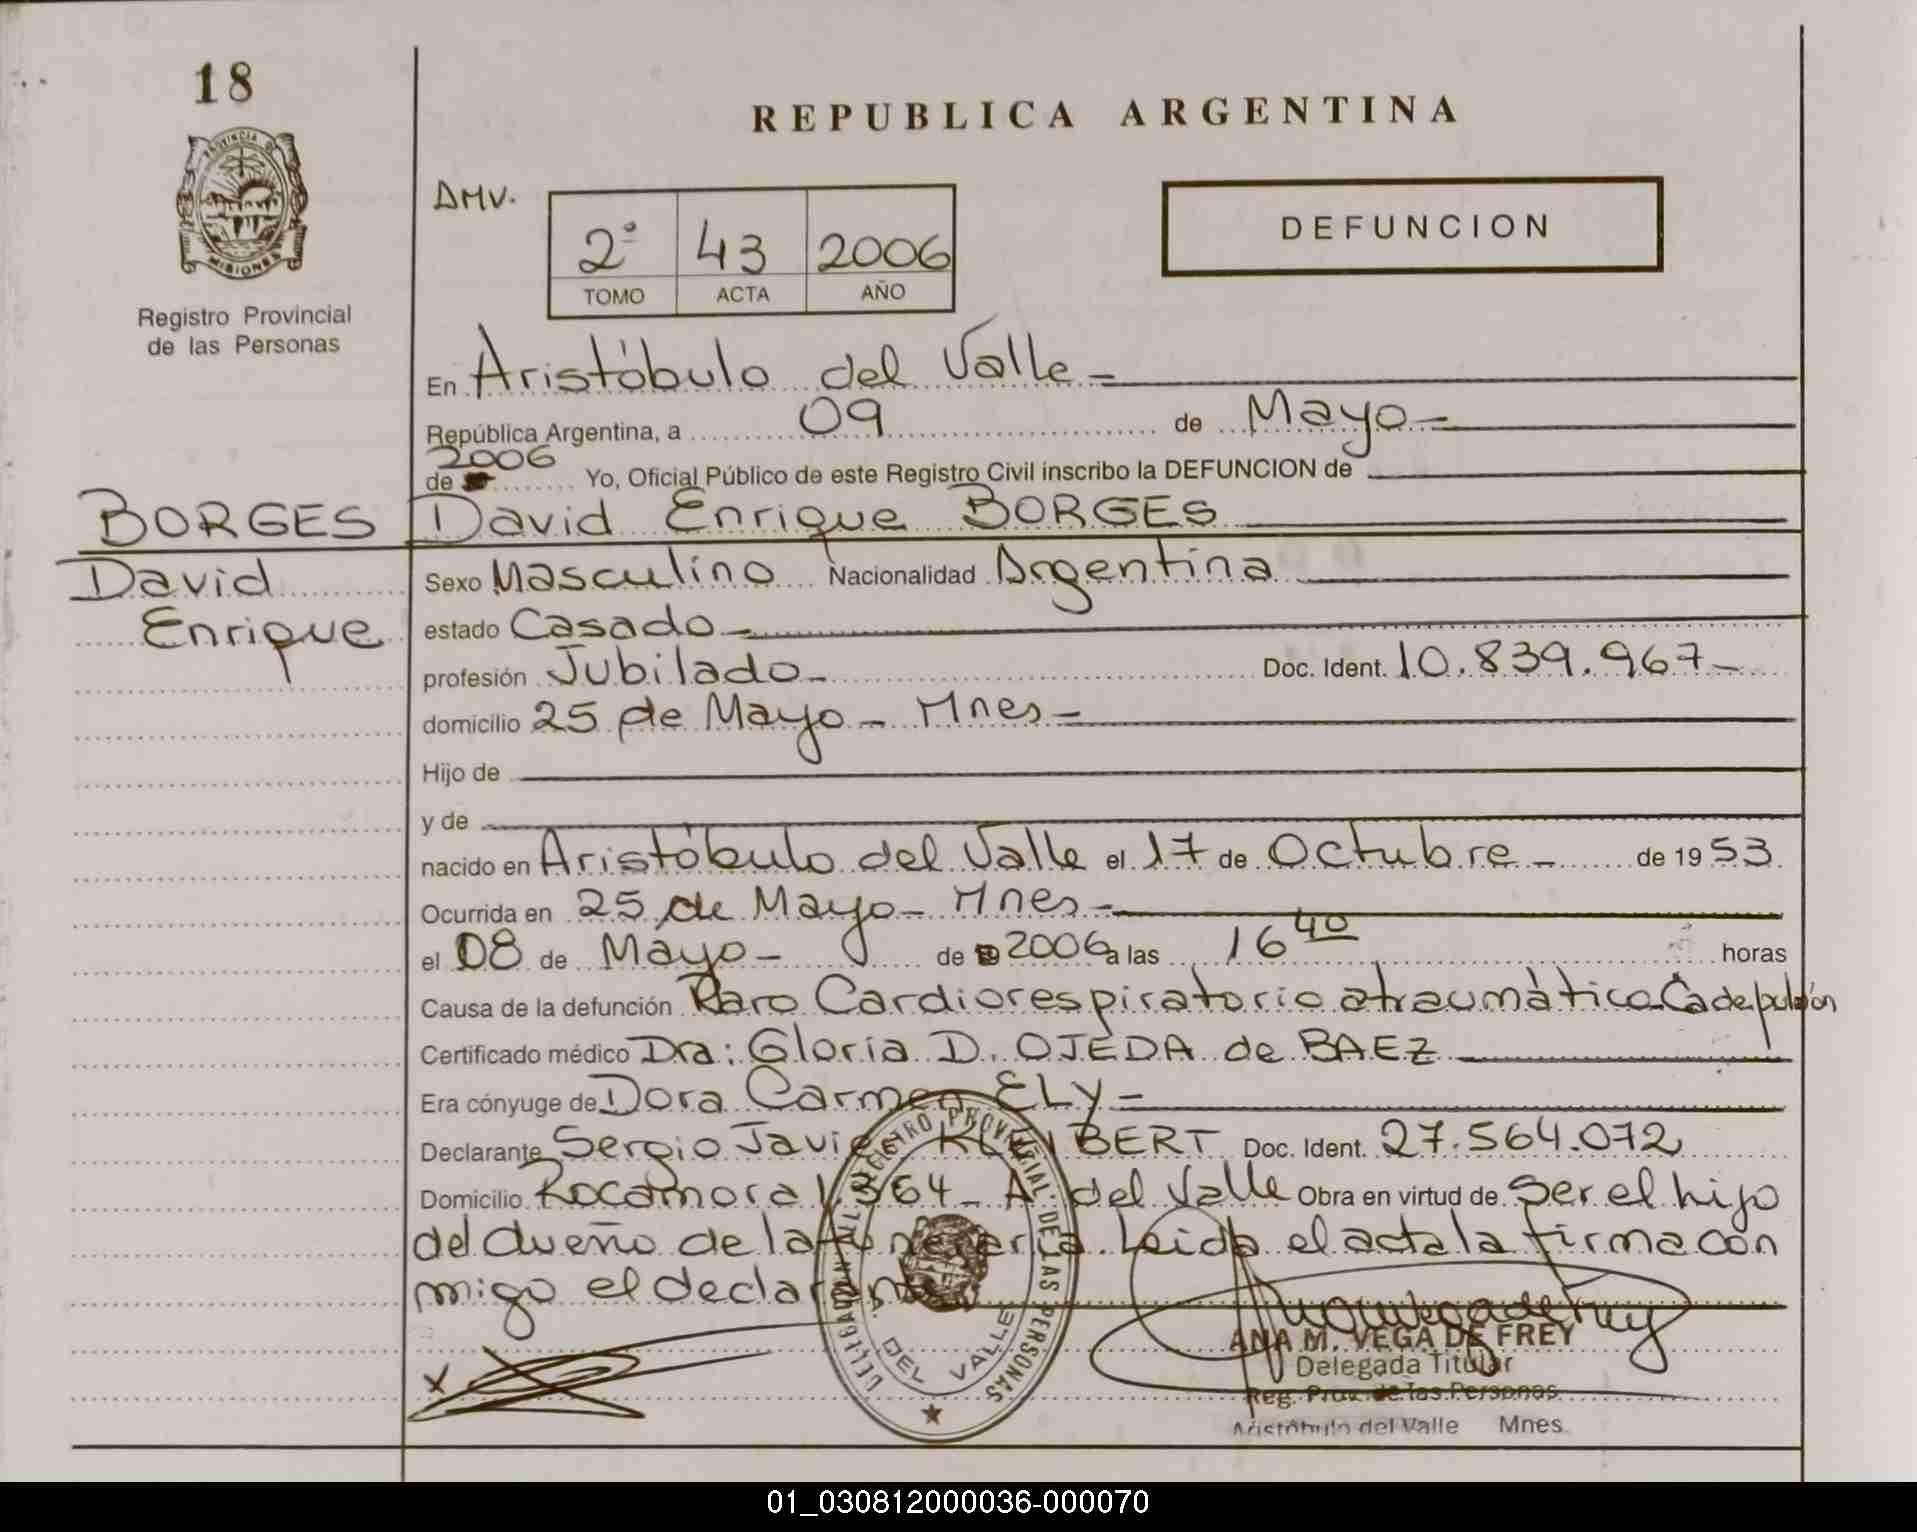 18
PROVINCIA DE
MISIONES
Registro Provincial
de las Personas
BORGES
David
Enrique
REPUBLICA ARGENTINA
AMV.
2º 43 2006
TOMO ACTA AÑO
DEFUNCION
En Aristóbulo del Valle -
República Argentina, a 09 de Mayo -
2006
de Yo, Oficial Público de este Registro Civil inscribo la DEFUNCION de
David Enrique BORGES
Sexo Masculino Nacionalidad Argentina
estado Casado -
profesión Jubilado - Doc. Ident. 10.839.967 -
domicilio 25 de Mayo - Mnes -
Hijo de
y de
nacido en Aristóbulo del Valle el 17 de Octubre - de 19 53
Ocurrida en 25 de Mayo - Mnes -
el 08 de Mayo - de 2006 a las 16 40 horas
Causa de la defunción Paro Cardiorespiratorio atraumático
Certificado médico Dra: Gloria D. OJEDA de BAEZ
Era cónyuge de Dora Carmen ELY -
Declarante Sergio Javier KLEIBERT Doc. Ident. 27.564.072
Domicilio Rocamora 1.364 - A. del Valle Obra en virtud de Ser el hijo
del dueño de la funeraria. Leida el acta la firma con
migo el declarante
DELEGACION REGISTRO PROVINCIAL DE LAS PERSONAS
DEL VALLE
ANA M. VEGA DE FREY
Delegada Titular
Reg. Prov. de las Personas
Aristóbulo del Valle Mnes.
01_030812000036-000070